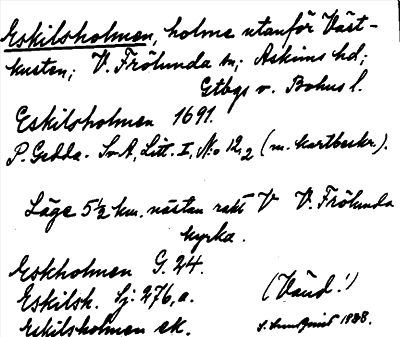 Eskilsholmen, holme utanför Väst-
kusten; V. Frölunda sn; Askims hd;
Gtbgs o. Bohus l.
Eskilsholmen 1691.
P. Gedda. SvA, Litt. I, No 12,2 (m. kartbeskr.).
Läge 5 1/2 km. nästan rakt V V. Frölunda
kyrka.
Eskholmen G. 24.
Eskilsh. Sj: 276, a. (Vänd!)
Eskilsholmen ek. 1928.